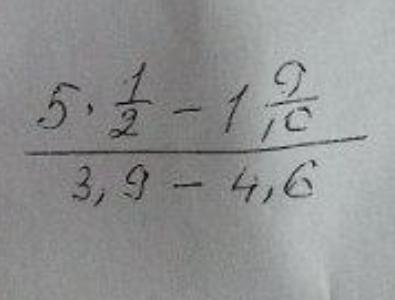 5 · 1/2 - 1 9/10
3,9 - 4,6